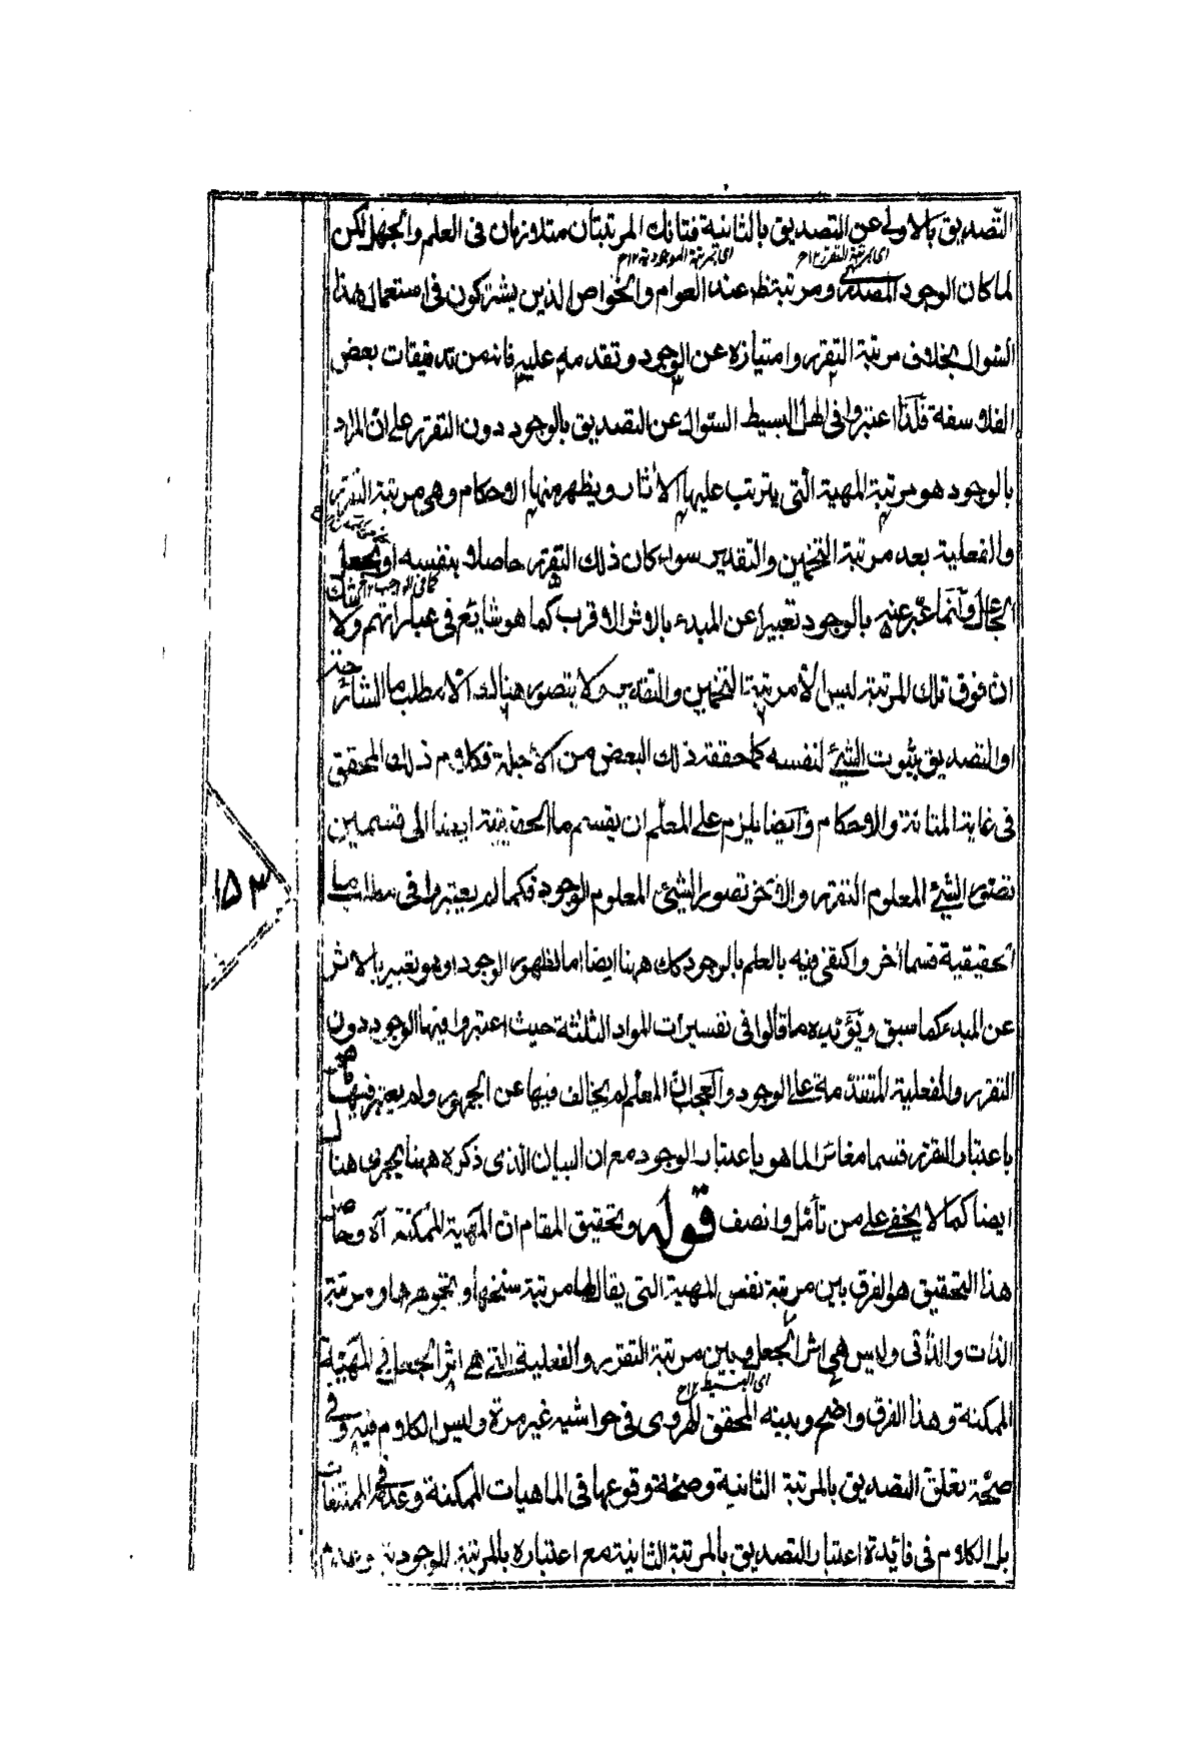 التصديق بالاولى عن التصديق بالثانية فتانك المرتبتان متلازمان فى العلم والجهل لكن
اى بمرتبة التقرر ١٢ اى بمرتبة الموجودية ١٢
لما كان الوجود المصدرى ومرتبته عند العوام والخواص الذين يشتركون فى استعمال هذا
السوال بخلاف مرتبة التقرر وامتيازه عن الوجود وتقدمه عليه فانه من تدقيقات بعض
الفلاسفة فلذا اعتبروا فى الهل البسيط السوال عن التصديق بالوجود دون التقرر على ان المراد
بالوجود هو مرتبة المهية التى يترتب عليها الأثار ويظهر منها الاحكام وهى مرتبة التقرر
والفعلية بعد مرتبة التخمين والتقدير سواء كان ذلك التقرر حاصلا بنفسه او بجعل
كما فى الواجب ١٢
الجاعل وانما عبر عنه بالوجود تعبيرا عن المبدء بالاثر الاقرب كما هو شايع فى عباراتهم ولا شك
ان فوق تلك المرتبة ليس الا مرتبة التخمين والتقدير ولا يتصور هنالك الا مطلب ما الشارحة
او التصديق بثبوت الشيئ لنفسه كما حققه ذلك البعض من الأجلة فكلام ذلك المحقق
فى غاية المتانة والاحكام وايضا يلزم على المعلم ان يقسم ما الحقيقية ايضا الى قسمين
تصور الشيئ المعلوم التقرر والاخر تصور الشيئ المعلوم الوجود فكما لم يعتبروا فى مطلب ما
الحقيقية قسما أخر واكتفى فيه بالعلم بالوجود كك ههنا ايضا اما لظهور الوجود او هو تعبير بالاثر
عن المبدء كما سبق ويؤيده ما قالوا فى تفسيرات المواد الثلثة حيث اعتبروا فيها الوجود دون
التقرر والفعلية المتقدمة على الوجود والعجب ان المعلم لم يخالف فيها عن الجمهور ولم يعتبر فيها
باعتبار التقرر قسما مغائرا لما هو باعتبار الوجود مع ان البيان الذى ذكره ههنا يجرى هناك
ايضا كما لا يخفى على من تأمل وانصف قوله وتحقيق المقام ان المهية الممكنة آه وحاصل
هذا التحقيق هو الفرق بين مرتبة نفس المهية التى يقال لها مرتبة سنخها وبتجوهرها ومرتبة
الذات والذاتى وليس هى اثر الجعل وبين مرتبة التقرر والفعلية التى هى اثر الجعل فى المهية
اى البسيط ١٢
الممكنة وهذا الفرق واضح وبينه المحقق الهروى فى حواشيه غير مرة وليس الكلام فيه وفى
صحة تعلق التصديق بالمرتبة الثانية وصحة وقوعها فى الماهيات الممكنة وعدمه فى الممتنعات
بل الكلام فى فائدة اعتبار التصديق بالمرتبة الثانية مع اعتباره بالمرتبة الموجودية
١٥٣